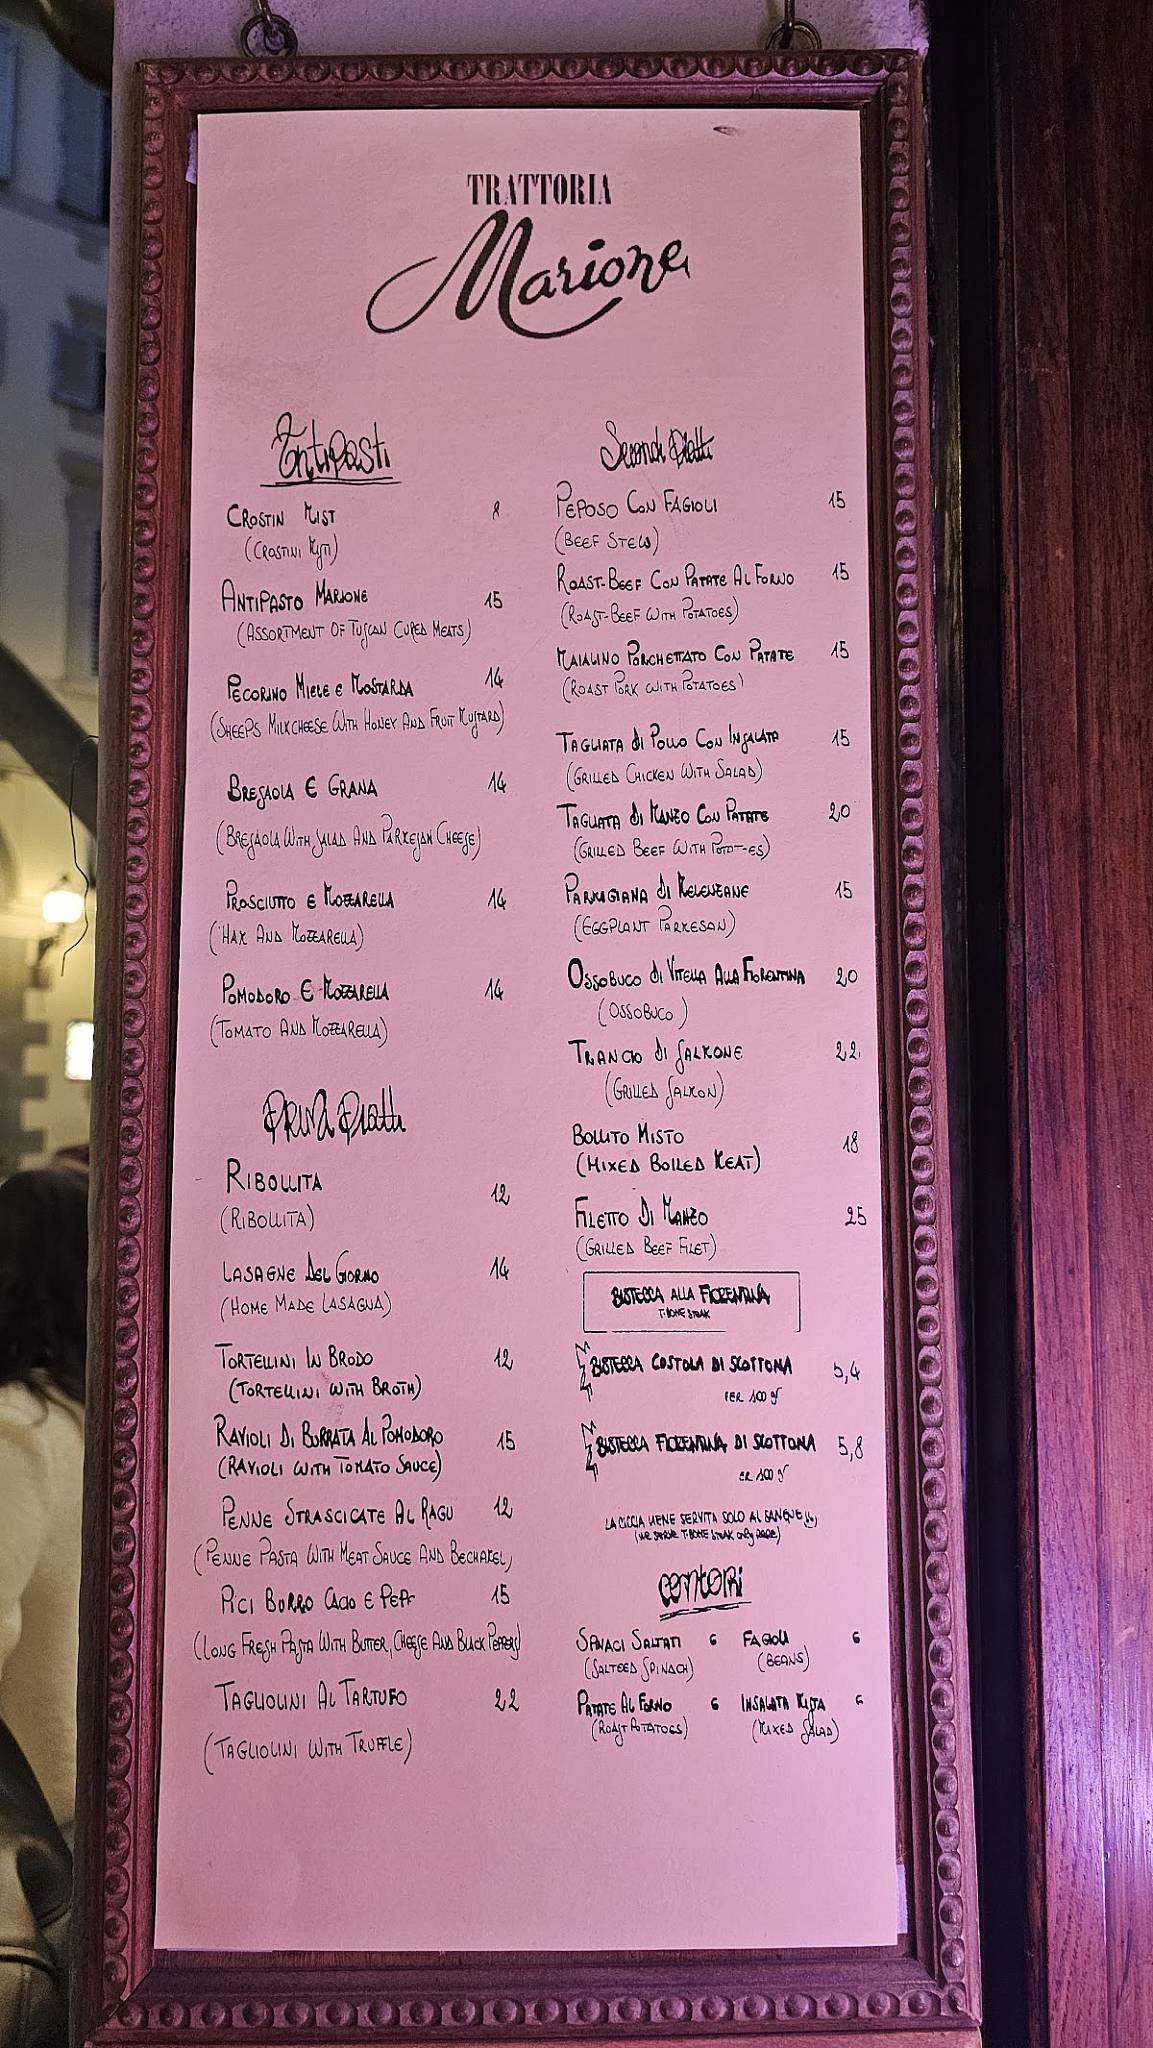 TRATTORIA
Marione
Antipasti
CROSTIN MIST 8
(CROSTINI MISTI)
ANTIPASTO MARIONE 15
(ASSORTMENT OF TUSCAN CURED MEATS)
PECORINO MIELE E MOSTARDA 14
(SHEEPS MILKCHEESE WITH HONEY AND FRUIT MUSTARD)
BRESAOLA E GRANA 14
(BRESAOLA WITH SALAD AND PARMESAN CHEESE)
PROSCIUTTO E MOZZARELLA 14
(HAM AND MOZZARELLA)
POMODORO E MOZZARELLA 14
(TOMATO AND MOZZARELLA)
PRIMI PIATTI
RIBOLLITA 12
(RIBOLLITA)
LASAGNE DEL GIORNO 14
(HOME MADE LASAGNA)
TORTELLINI IN BRODO 12
(TORTELLINI WITH BROTH)
RAVIOLI DI BURRATA AL POMODORO 15
(RAVIOLI WITH TOMATO SAUCE)
PENNE STRASCICATE AL RAGU 12
(PENNE PASTA WITH MEAT SAUCE AND BECHAMEL)
PICI BURRO CACIO E PEPE 15
(LONG FRESH PASTA WITH BUTTER, CHEESE AND BLACK PEPPERS)
TAGLIOLINI AL TARTUFO 22
(TAGLIOLINI WITH TRUFFLE)
Secondi Piatti
PEPOSO CON FAGIOLI 15
(BEEF STEW)
ROAST-BEEF CON PATATE AL FORNO 15
(ROAST-BEEF WITH POTATOES)
MAIALINO PORCHETTATO CON PATATE 15
(ROAST PORK WITH POTATOES)
TAGLIATA DI POLLO CON INSALATA 15
(GRILLED CHICKEN WITH SALAD)
TAGLIATA DI MANZO CON PATATE 20
(GRILLED BEEF WITH POTATOES)
PARMIGIANA DI MELENZANE 15
(EGGPLANT PARMESAN)
OSSOBUCO DI VITELLA ALLA FIORENTINA 20
(OSSOBUCO)
TRANCIO DI SALMONE 22
(GRILLED SALMON)
BOLLITO MISTO 18
(MIXED BOILED MEAT)
FILETTO DI MANZO 25
(GRILLED BEEF FILET)
BISTECCA ALLA FIORENTINA
T-BONE STEAK
BISTECCA COSTOLA DI SCOTTONA 5,4
PER 100 gr
BISTECCA FIORENTINA DI SCOTTONA 5,8
ER 100 gr
LA CICCIA VIENE SERVITA SOLO AL SANGUE
(WE SERVE T-BONE STEAK only RARE)
CONTORNI
SPINACI SALTATI 6 FAGIOLI 6
(SALTEED SPINACH) (BEANS)
PATATE AL FORNO 6 INSALATA MISTA 6
(ROAST POTATOES) (MIXED SALAD)